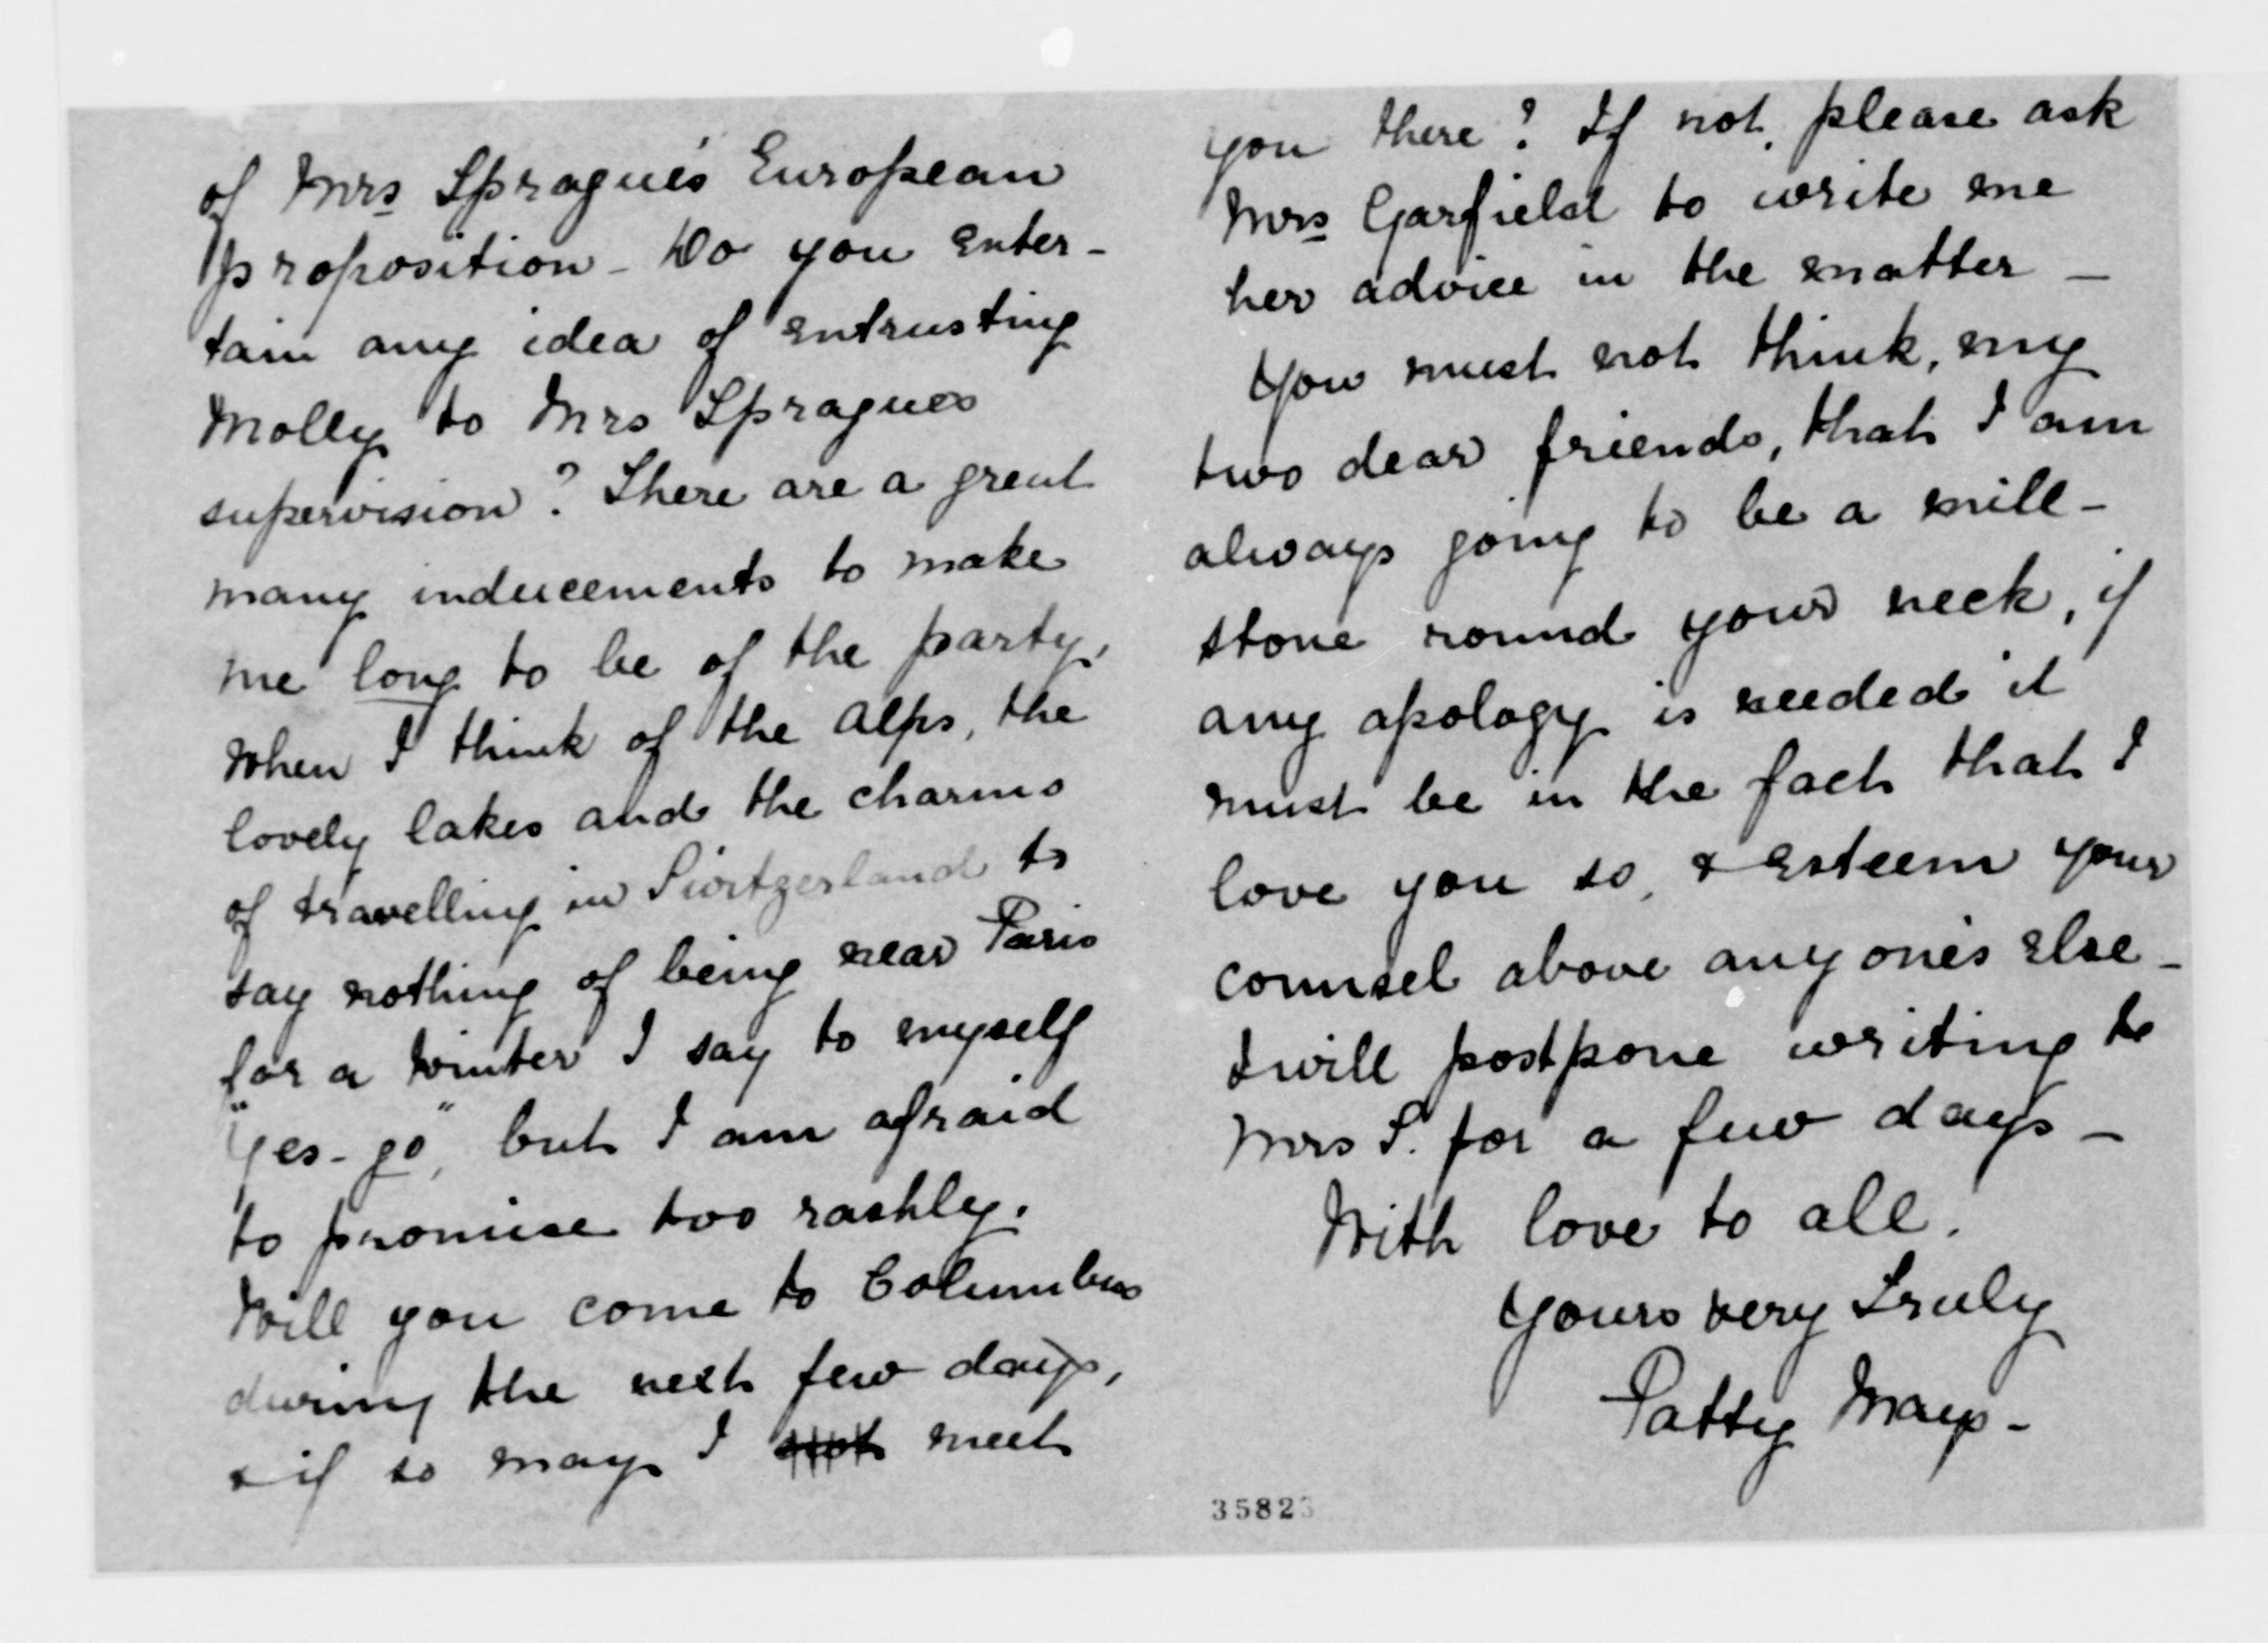 of Mrs Sprague's European
proposition - Do you enter-
tain any idea of entrusting
Molly to Mrs Spragues
supervision? There are a great
many inducements to make
me long to be of the party,
When I think of the Alps, the
lovely lakes and the charms
of travelling in Switzerland to
say nothing of being near Paris
for a winter I say to myself
"Yes - go", but I am afraid
to promise too rashly.
Will you come to Columbus
during the next few days,
& if so may I not meet
you there? If not, please ask
Mrs Garfield to write me
her advice in the matter -
You must not think, my
two dear friends, that I am
always going to be a mill-
stone round your neck, if
any apology is needed it
must be in the fact that I
love you so, & esteem your
counsel above any one's else -
I will postpone writing to
Mrs S. for a few days -
With love to all.
Yours very truly
Patty Mays -
35823